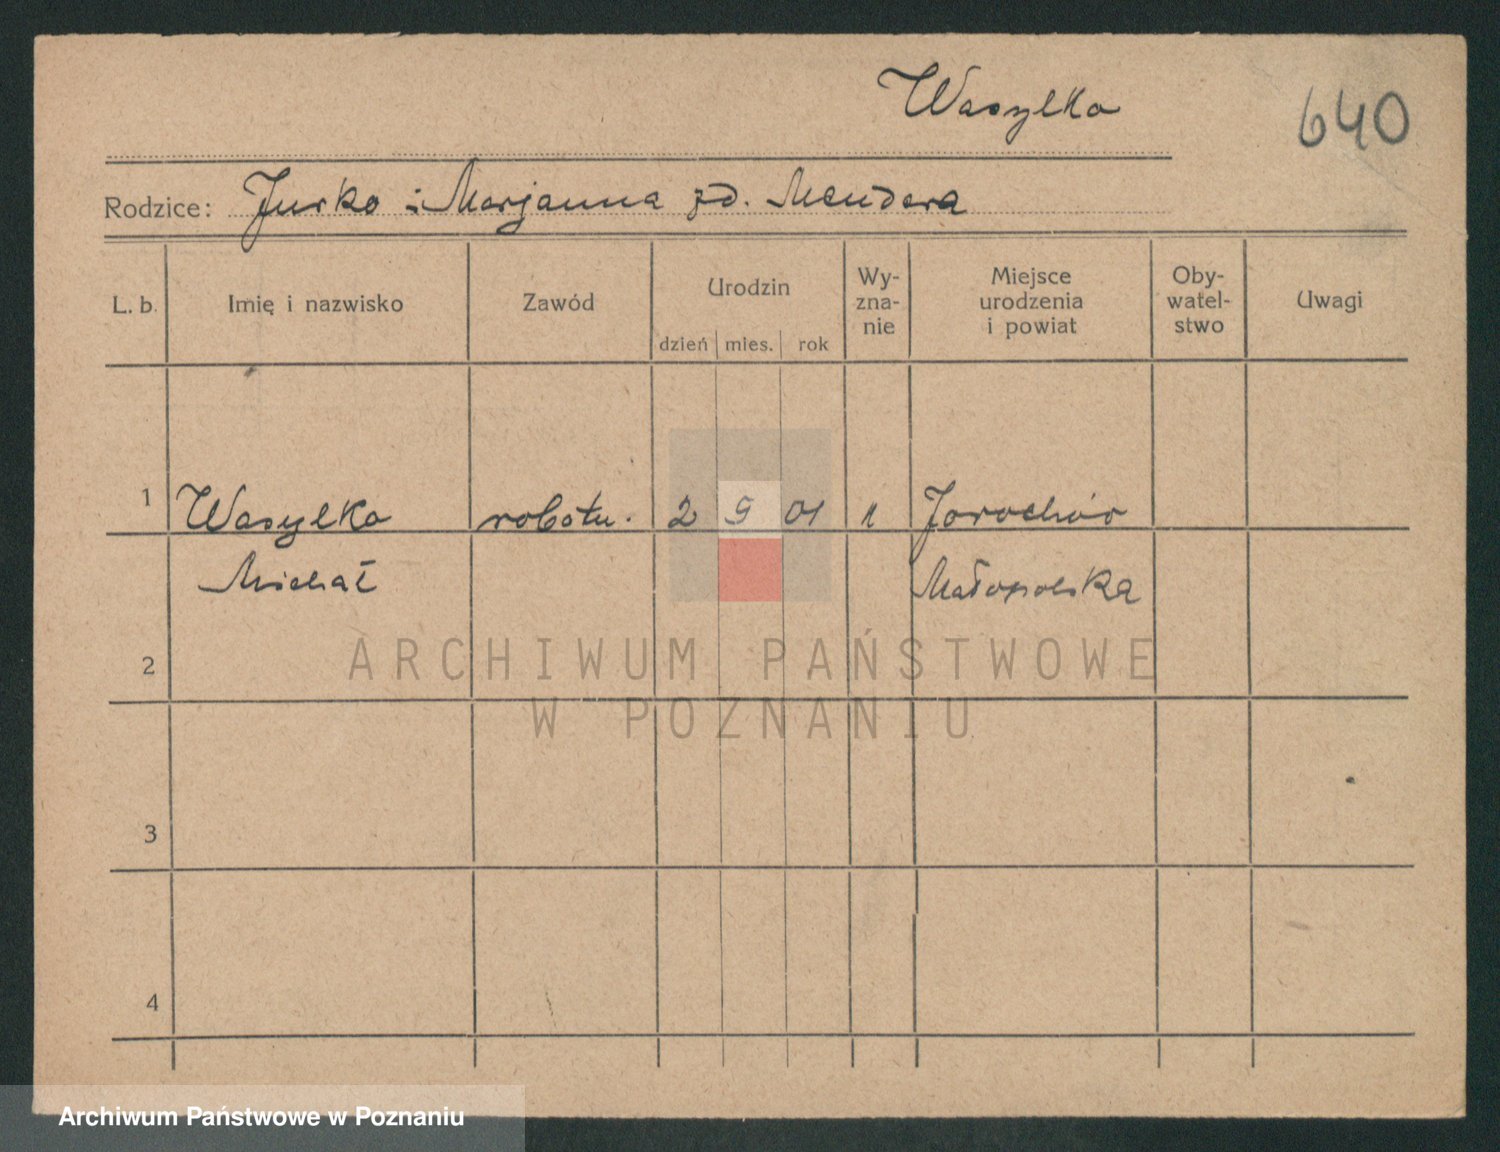 Wasylko
640
Rodzice: Jurko i Marjanna zd. Mendera
L. b. Imię i nazwisko Zawód Urodzin dzień mies. rok Wy-zna-nie Miejsce urodzenia i powiat Oby-watel-stwo Uwagi
1 Wasylko robotn. 2 9 01
Michał Małopolska
2
ARCHIWUM PAŃSTWOWE
W POZNANIU
3
4
Archiwum Państwowe w Poznaniu